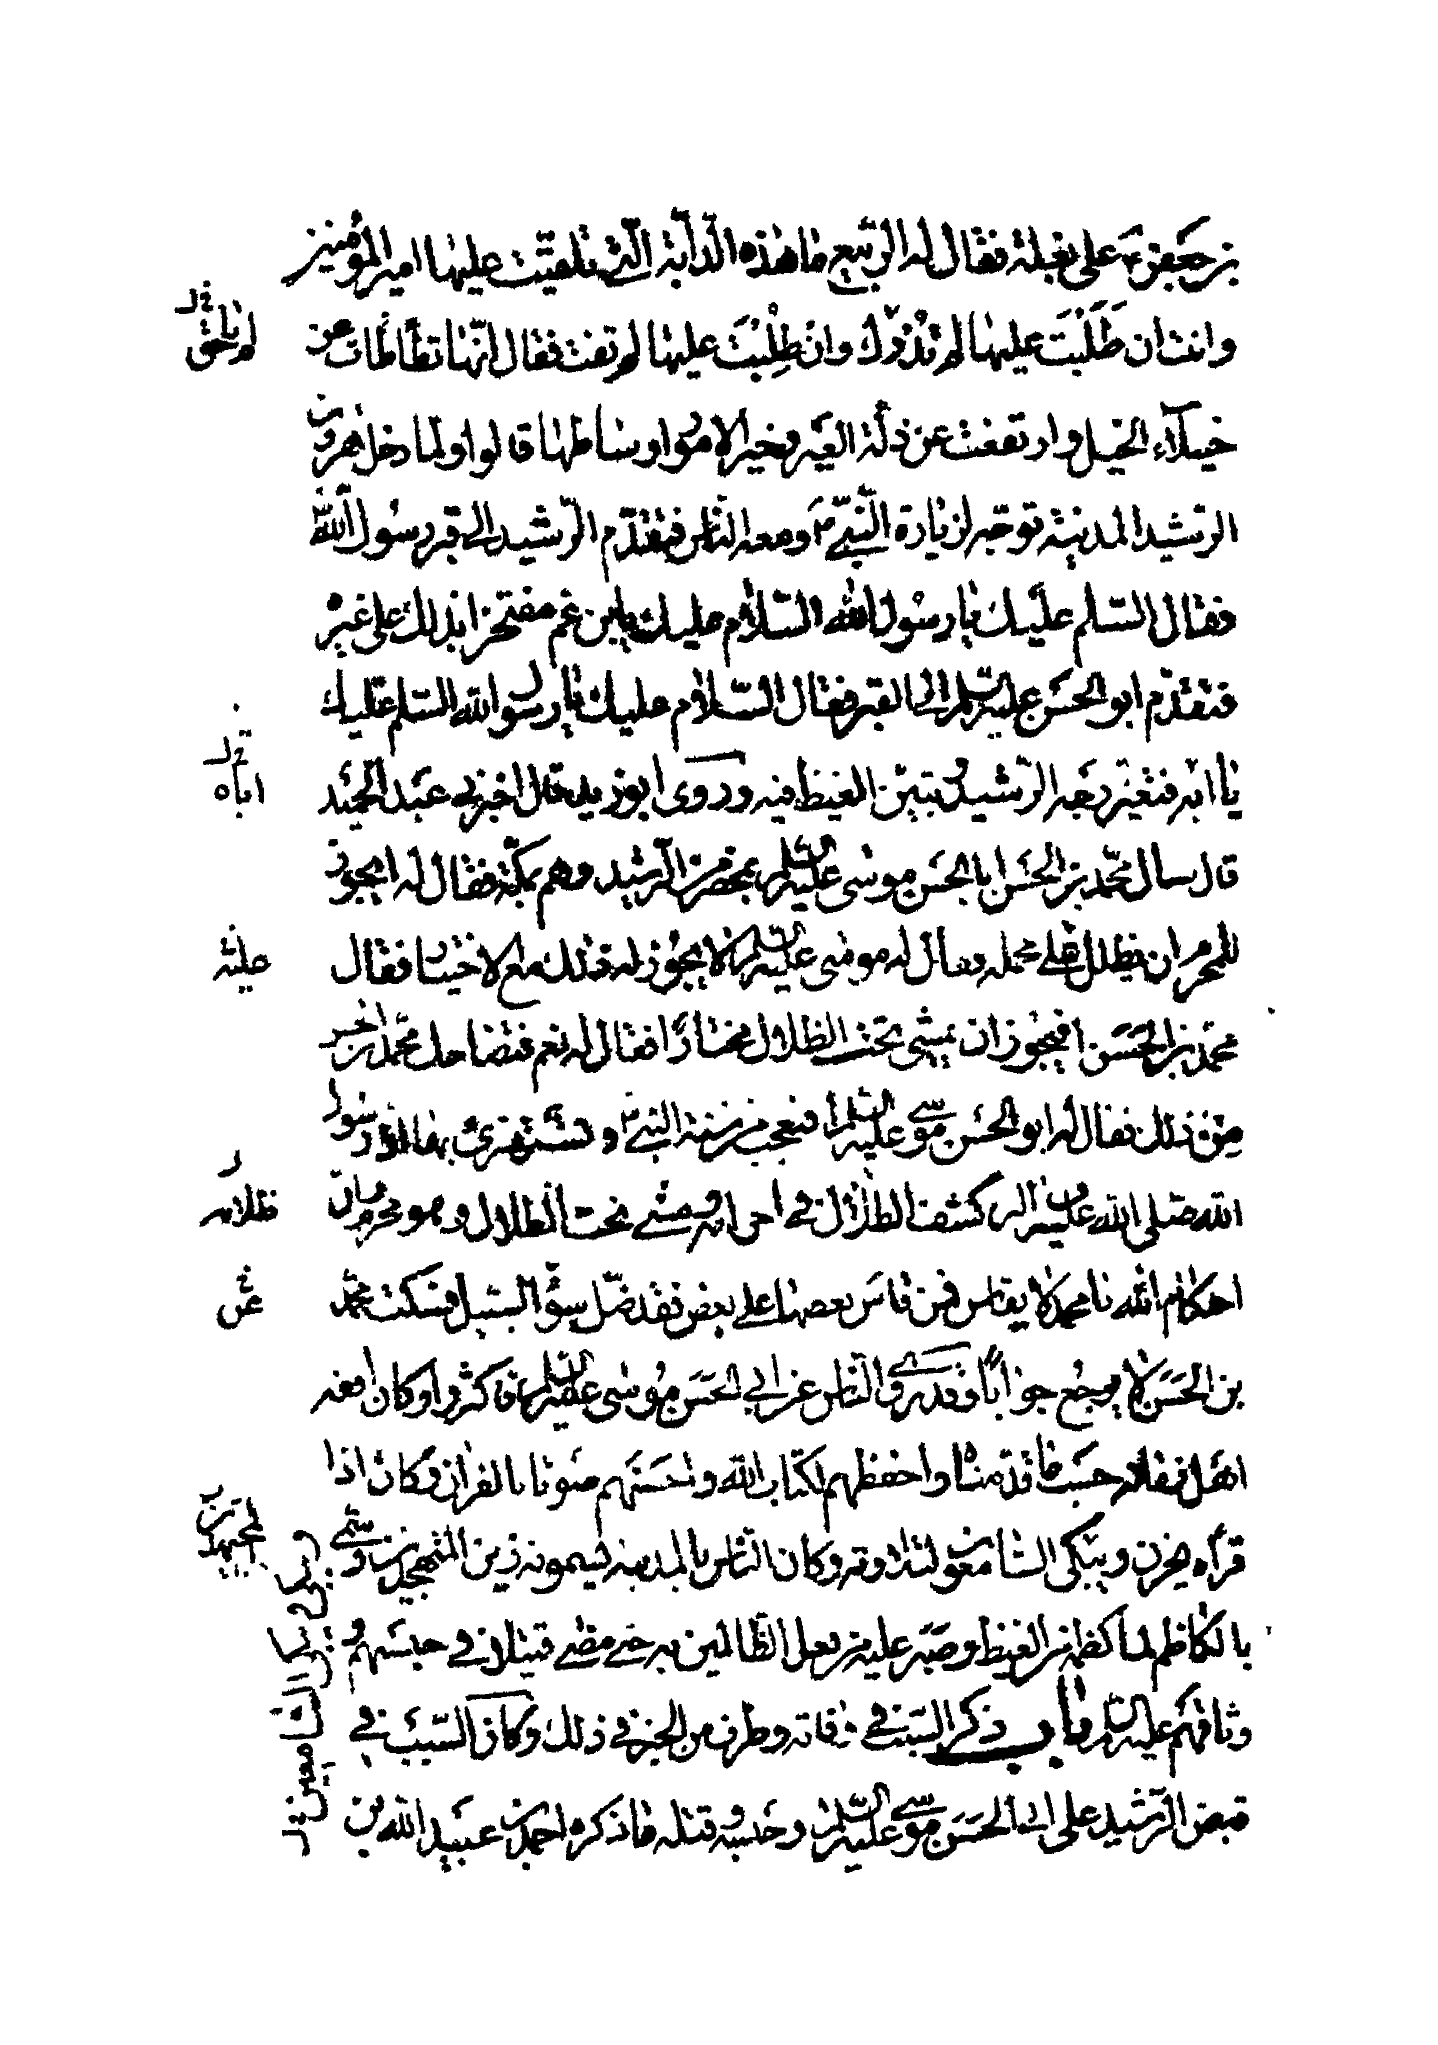 بن جعفر ع على بغلة فقال له الربيع ما هذه الدّابّة الّتي تلقيت عليها امير المؤمنين
وانت ان طَلَبْتَ عليها لم تدرك وان طُلِبْتَ عليها لم تفت فقال انّها تطأطأت عن
خيلاء الخيل وارتفعت عن ذلّة العير وخير الامور اوساطها قالوا ولما دخل هرون
الرّشيد المدينة توجّه لزيارة النّبيّ ص ومعه الناس فتقدّم الرّشيد الى قبر رسول اللّه ص
فقال السّلم عليك يا رسول اللّه السّلام عليك يابن عمّ مفتخرا بذلك على غيره
فتقدّم ابو الحسن عليه السلم الى القبر فقال السّلام عليك يا رسول اللّه السّلم عليك
يا ابه فتغيّر وجه الرّشيد وتبيّن الغيظ فيه وروى ابو زيد قال اخبرني عبد الحميد
قال سال محمّد بن الحسن ابا الحسن موسى عليه السلم بمحضر من الرّشيد وهم بمكّة فقال له ايجوز
للمحرم ان يظلل على محمله فقال له موسى عليه السلم لا يجوز له ذلك مع الاختيار فقال
محمّد بن الحسن افيجوز ان يمشي تحت الظلال مختارًا فقال له نعم فتضاحك محمّد بن الحسن
من ذلك فقال له ابو الحسن موسى عليه السلم اتعجب من سنة النبي ص وتستهزئ بها ان رسول
اللّه صلى اللّه عليه واله كشف الظلال في احرامه ومشى تحت الظلال وهو محرم وان
احكام اللّه يا محمد لا يقاس فمن قاس بعضها على بعض فقد ضلّ سواء السبيل فسكت محمّد
بن الحسن لا يرجع جوابًا وقد روى النّاس عن ابي الحسن موسى عليه السلم فاكثروا وكان افقه
اهل زمانه حسب ما قدّمناه واحفظهم لكتاب اللّه واحسنهم صوتا بالقران وكان اذا
قرأه يحزن ويبكى السّامعون لتلاوته وكان النّاس بالمدينة يسمونه زين المتهجدين وسمّى
بالكاظم لما كظمه من الغيظ وصبر عليه من فعل الظّالمين به حتى مضى قتيلا في حبسهم
وثاقهم عليه السلم باب ذكر السبب في وفاته وطرف من الخبر في ذلك وكان السّبب في
قبض الرّشيد على ابي الحسن موسى عليه السلم وحبسه وقتله ما ذكره احمد بن عبيد اللّه بن
لم تلحق خ ل
اباه خ ل
عليه
ظلاله
عن خ
المجتهدين